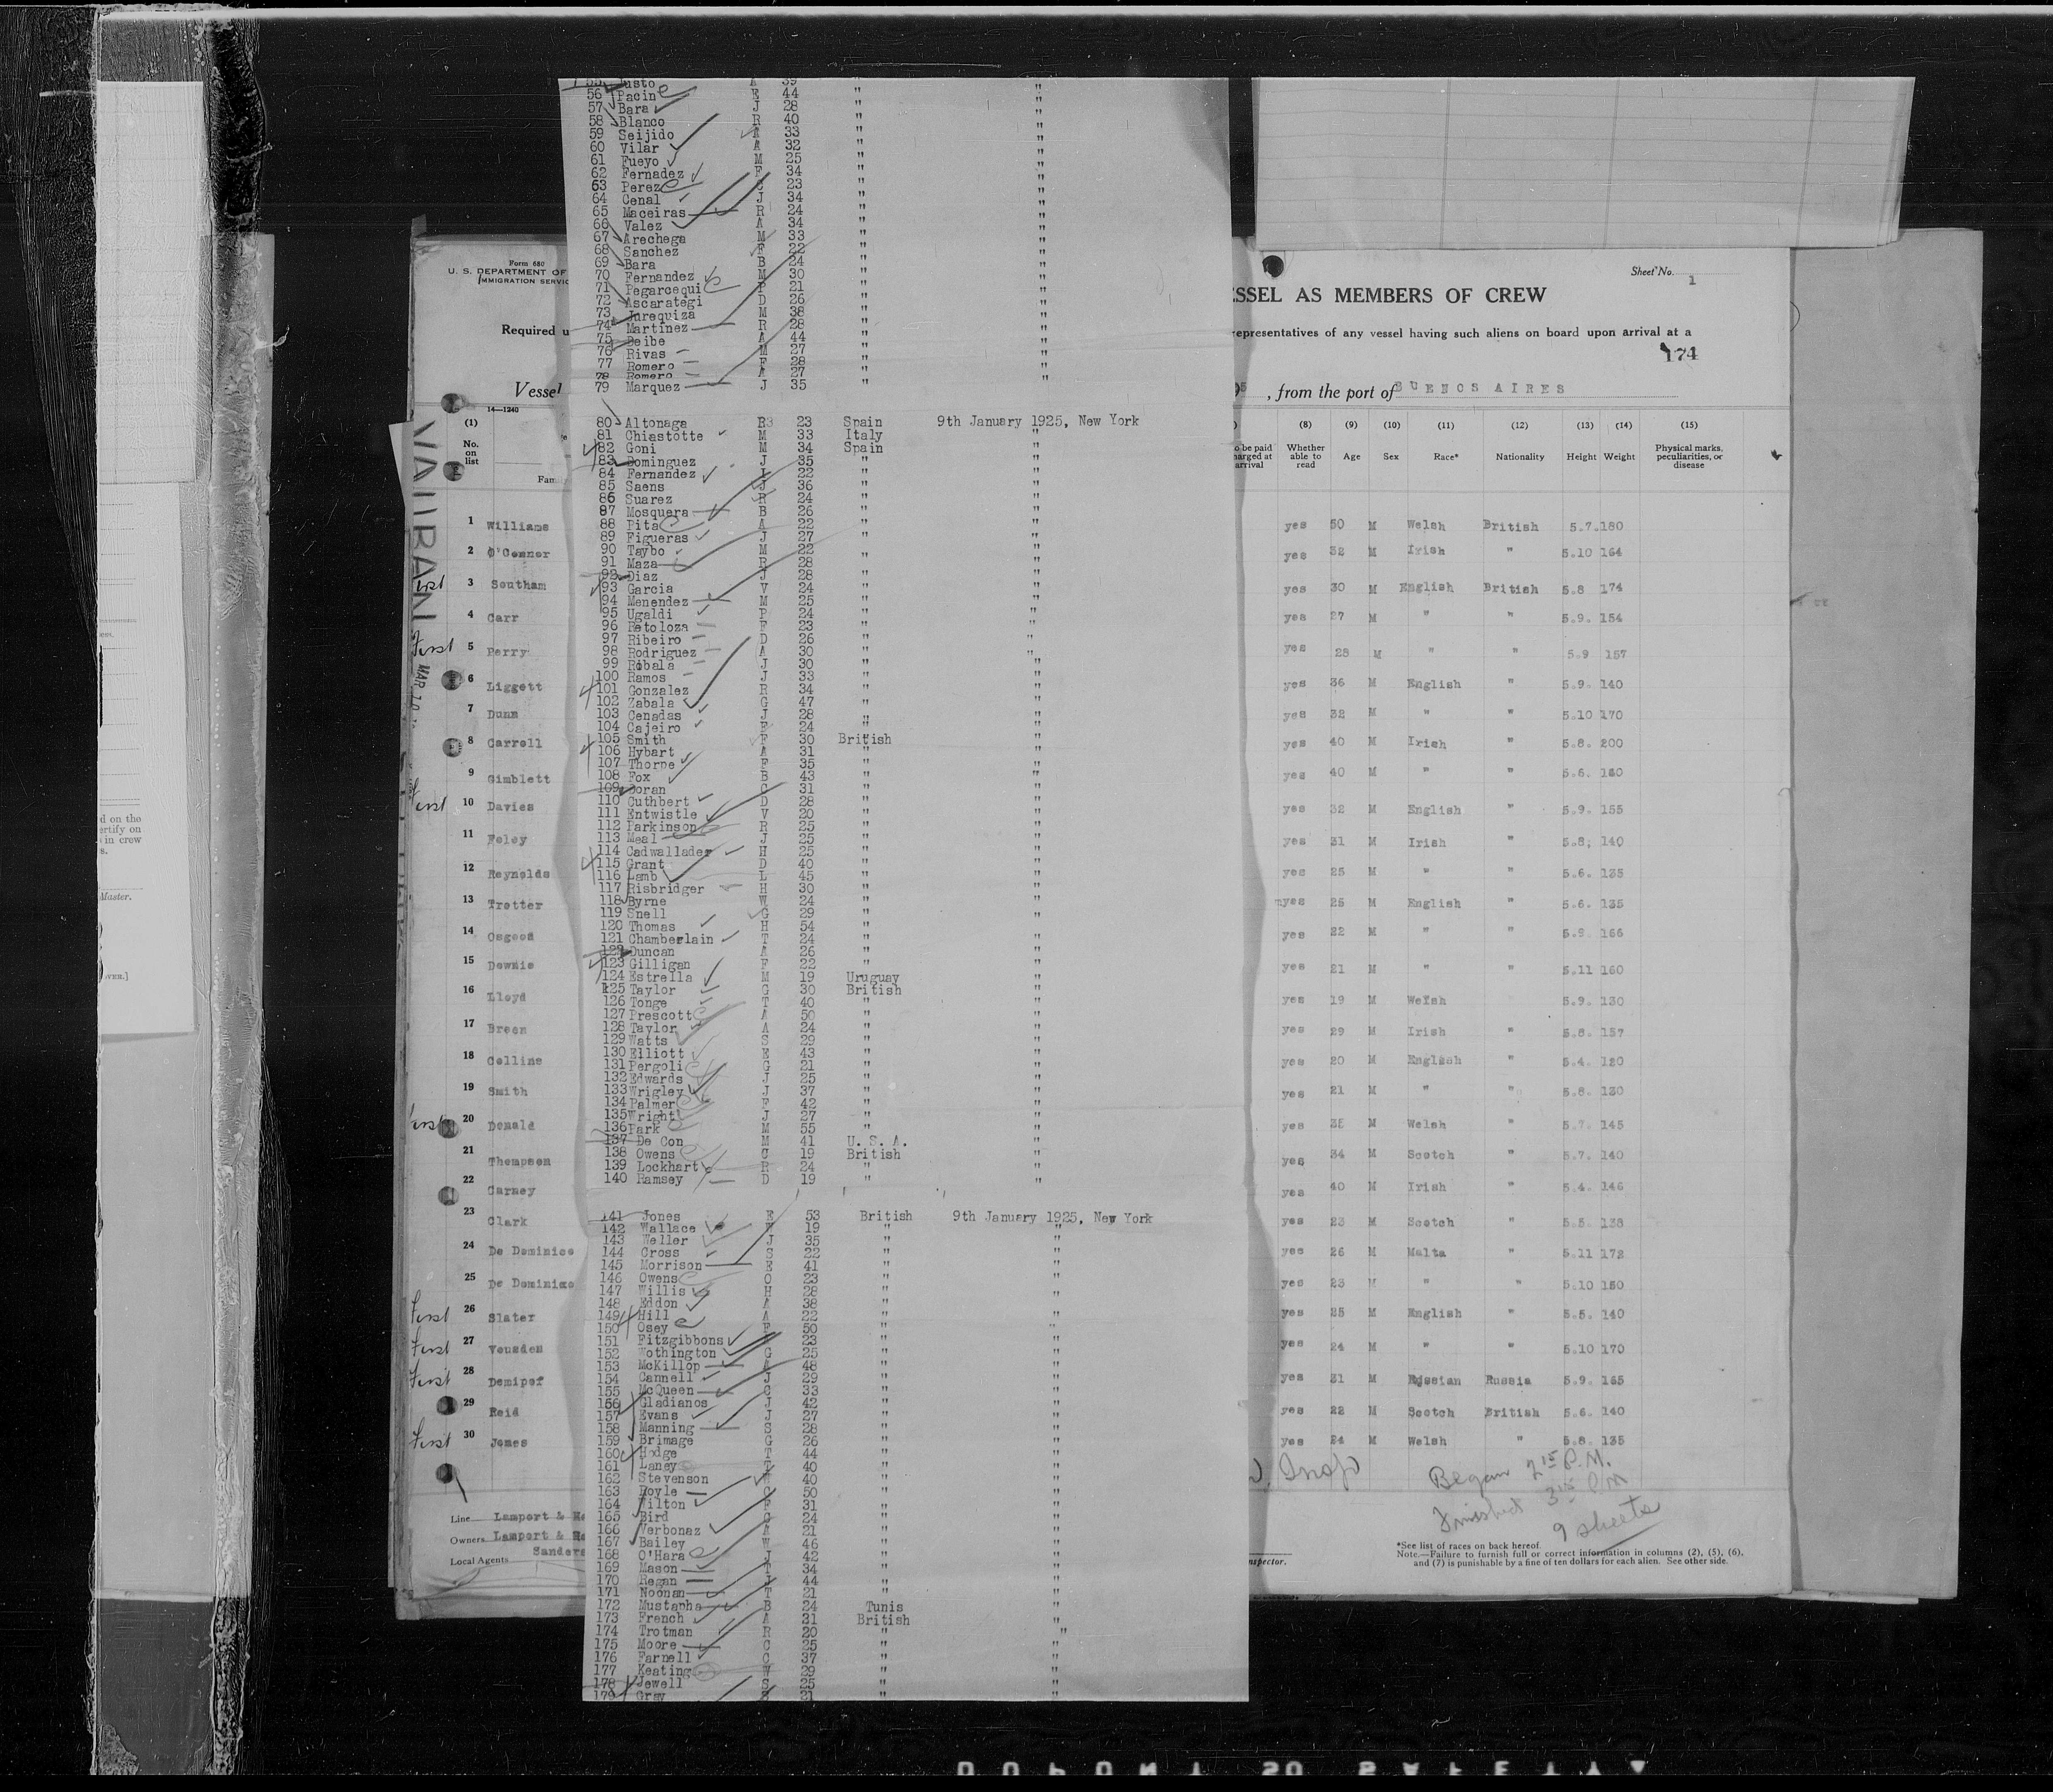 56 Pacin E 44 " "
57 Bara J 28 " "
58 Blanco R 40 " "
59 Seijido A 33 " "
60 Vilar A 32 " "
61 Fueyo M 25 " "
62 Fernadez F 34 " "
63 Perez 23 " "
64 Cenal J 34 " "
65 Maceiras R 24 " "
66 Valez A 34 " "
67 Arechega M 33 " "
68 Sanchez F 22 " "
69 Bara B 24 " "
70 Fernandez M 30 " "
71 Pegarcequi P 21 " "
72 Ascarategi D 26 " "
73 Jurequiza M 38 " "
74 Martinez R 28 " "
75 Beibe A 44 " "
76 Rivas M 27 " "
77 Romero F 28 " "
78 Romero A 27 " "
79 Marquez J 35 " "
80 Altonaga R 23 Spain 9th January 1925, New York
81 Chiastotte M 33 Italy "
82 Goni M 34 Spain "
83 Dominguez J 35 " "
84 Fernandez J 22 " "
85 Saens J 36 " "
86 Suarez R 24 " "
87 Mosquera B 26 " "
88 Pita A 22 " "
89 Figueras J 27 " "
90 Taybo M 22 " "
91 Maza R 28 " "
92 Diaz J 28 " "
93 Garcia V 24 " "
94 Menendez M 25 " "
95 Ugaldi P 24 " "
96 Retoloza F 23 " "
97 Ribeiro D 26 " "
98 Rodriguez A 30 " "
99 Robala J 30 " "
100 Ramos J 33 " "
101 Gonzalez R 34 " "
102 Zabala G 47 " "
103 Cenadas J 28 " "
104 Cajeiro E 24 " "
105 Smith F 30 British "
106 Hybart A 31 " "
107 Thorpe F 35 " "
108 Fox B 43 " "
109 Doran C 31 " "
110 Cuthbert D 28 " "
111 Entwistle V 20 " "
112 Parkinson R 25 " "
113 Meal J 25 " "
114 Cadwallader H 25 " "
115 Grant D 40 " "
116 Lamb L 45 " "
117 Risbridger H 30 " "
118 Byrne W 24 " "
119 Snell G 29 " "
120 Thomas H 54 " "
121 Chamberlain T 24 " "
122 Duncan A 26 " "
123 Gilligan F 22 " "
124 Estrella M 19 Uruguay "
125 Taylor G 30 British "
126 Tonge T 40 " "
127 Prescott A 50 " "
128 Taylor A 24 " "
129 Watts S 29 " "
130 Elliott E 43 " "
131 Pergoli G 21 " "
132 Edwards J 25 " "
133 Wrigley J 37 " "
134 Palmer F 42 " "
135 Wright J 27 " "
136 Park M 55 " "
137 De Con M 41 U. S. A. "
138 Owens C 19 British "
139 Lockhart R 24 " "
140 Ramsey D 19 " "
141 Jones E 53 British 9th January 1925, New York
142 Wallace W 19 " "
143 Weller J 35 " "
144 Cross S 22 " "
145 Morrison E 41 " "
146 Owens O 23 " "
147 Willis H 28 " "
148 Eddon A 38 " "
149 Hill A 22 " "
150 Osey F 50 " "
151 Fitzgibbons 23 " "
152 Wothington G 25 " "
153 McKillop A 48 " "
154 Cannell J 29 " "
155 McQueen C 33 " "
156 Gladianos J 42 " "
157 Evans J 27 " "
158 Manning S 28 " "
159 Brimage G 26 " "
160 Hodge T 44 " "
161 Laney T 40 " "
162 Stevenson W 40 " "
163 Doyle C 50 " "
164 Wilton F 31 " "
165 Bird G 24 " "
166 Verbonaz A 21 " "
167 Bailey W 46 " "
168 O'Hara J 42 " "
169 Mason T 34 " "
170 Regan J 44 " "
171 Noonan T 21 " "
172 Mustapha B 24 Tunis "
173 French A 31 British "
174 Trotman R 20 " "
175 Moore C 25 " "
176 Farnell C 37 " "
177 Keating W 29 " "
178 Jewell S 25 " "
179 Gray 21 " "
Form 680
U. S. DEPARTMENT OF
IMMIGRATION SERVIC
Sheet No. 1
ESSEL AS MEMBERS OF CREW
Required u
representatives of any vessel having such aliens on board upon arrival at a
174
Vessel
, from the port of BUENOS AIRES
14—1240
(1) (8) (9) (10) (11) (12) (13) (14) (15)
No. on list
Fam
o be paid harged at arrival
Whether able to read
Age Sex Race* Nationality Height Weight
Physical marks, peculiarities, or disease
1 Williams yes 50 M Welsh British 5.7. 180
2 O'Connor yes 32 M Irish " 5.10 164
3 Southam yes 30 M English British 5.8 174
4 Carr yes 27 M " " 5.9. 154
First 5 Perry yes 28 M " " 5.9 157
6 Liggett yes 36 M English " 5.9. 140
7 Dunn yes 32 M " " 5.10 170
8 Carroll yes 40 M Irish " 5.8. 200
9 Gimblett yes 40 M " " 5.6. 180
First 10 Davies yes 32 M English " 5.9. 155
11 Foley yes 31 M Irish " 5.8; 140
12 Reynolds yes 25 M " " 5.6. 135
13 Trotter yes 25 M English " 5.6. 135
14 Osgood yes 22 M " " 5.9. 166
15 Downie yes 21 M " " 5.11 160
16 Lloyd yes 19 M Welsh " 5.9. 130
17 Breen yes 29 M Irish " 5.8. 157
18 Collins yes 20 M English " 5.4. 120
19 Smith yes 21 M " " 5.8. 130
20 Donald yes 35 M Welsh " 5.7. 145
21 Thompson yes 34 M Scotch " 5.7. 140
22 Carney yes 40 M Irish " 5.4. 146
23 Clark yes 23 M Scotch " 5.5. 138
24 De Dominico yes 26 M Malta " 5.11 172
25 De Dominico yes 23 M " " 5.10 150
First 26 Slater yes 25 M English " 5.5. 140
First 27 Vousden yes 24 M " " 5.10 170
First 28 Demipof yes 31 M Russian Russia 5.9. 165
29 Reid yes 22 M Scotch British 5.6. 140
First 30 Jones yes 24 M Welsh " 5.8. 135
Insp
Began 2 15 P.M.
Finished 3 15 PM
9 sheets
Line Lamport & Ho
Owners Lamport & Ho
Sanders
Local Agents
nspector.
*See list of races on back hereof.
Note.—Failure to furnish full or correct information in columns (2), (5), (6),
and (7) is punishable by a fine of ten dollars for each alien. See other side.
MAR 10
d on the
ertify on
in crew
s.
Master.